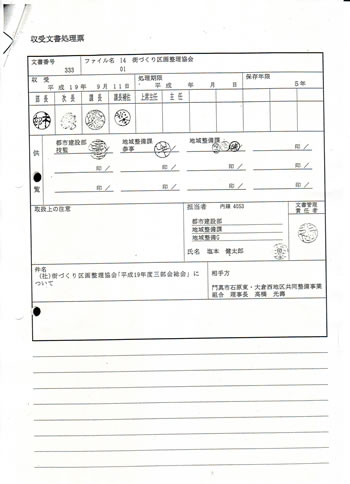 収受文書処理票
文書番号
333
ファイル名 14 街づくり区画整理協会
01
収 受
平成 19年 9月 11日
処理期限
平成 年 月 日
保存年限
5年
部 長 次 長 課 長 課長補佐 上席主任 主 任
供
覧
都市建設部
技監
印／
地域整備課
参事
印／
地域整備課
印／
印／
印／ 印／ 印／ 印／
印／ 印／ 印／ 印／
取扱上の注意
担当者 内線 4053
都市建設部
地域整備課
地域整備G
氏名 塩本 健太郎
文書管理
責任者
件名
(社)街づくり区画整理協会「平成19年度三部会総会」に
ついて
相手方
門真市石原東・大倉西地区共同整備事業
組合 理事長 高橋 光壽